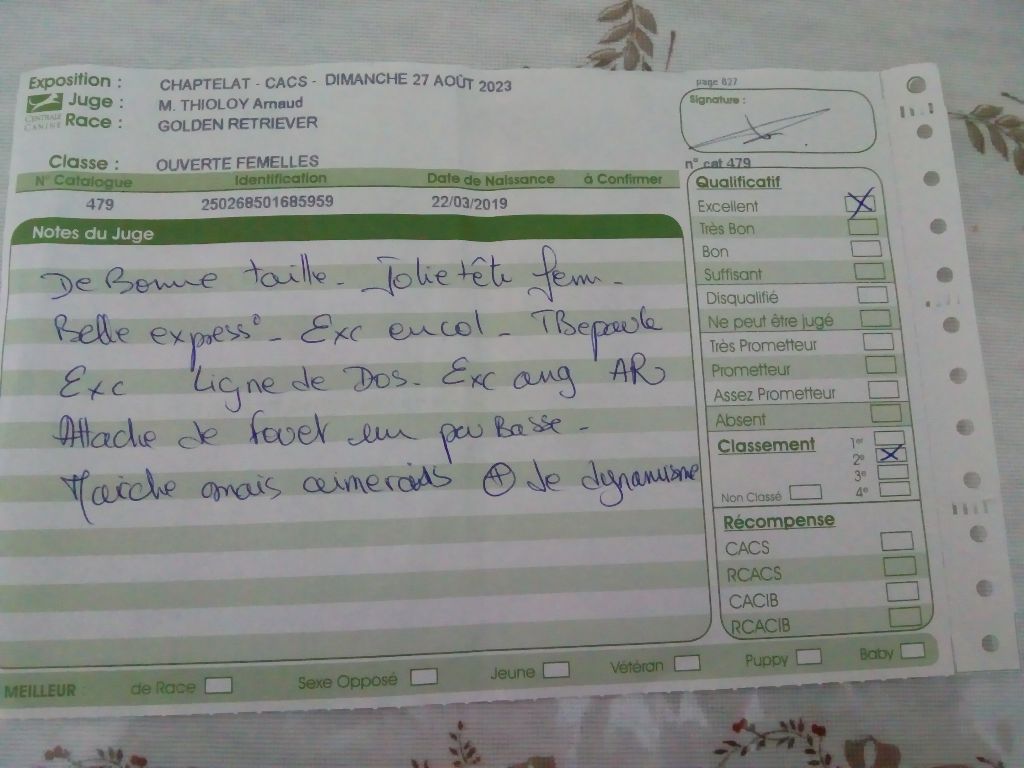 Exposition : CHAPTELAT - CACS - DIMANCHE 27 AOÛT 2023
Juge : M. THIOLOY Arnaud
CENTRALE CANINE
Race : GOLDEN RETRIEVER
Classe : OUVERTE FEMELLES
page 827
Signature :
n° cat 479
N° Catalogue Identification Date de Naissance à Confirmer
479 250268501685959 22/03/2019
Notes du Juge
De Bonne taille - Jolie tête fem -
Belle express° - Exc encol - TB epaule
Exc Ligne de Dos - Exc ang AR
Attache de fouet un peu Basse -
Marche mais aimerais + de dynamisme
Qualificatif
Excellent X
Très Bon
Bon
Suffisant
Disqualifié
Ne peut être jugé
Très Prometteur
Prometteur
Assez Prometteur
Absent
Classement 1er
2e X
3e
Non Classé 4e
Récompense
CACS
RCACS
CACIB
RCACIB
MEILLEUR : de Race Sexe Opposé Jeune Vétéran Puppy Baby